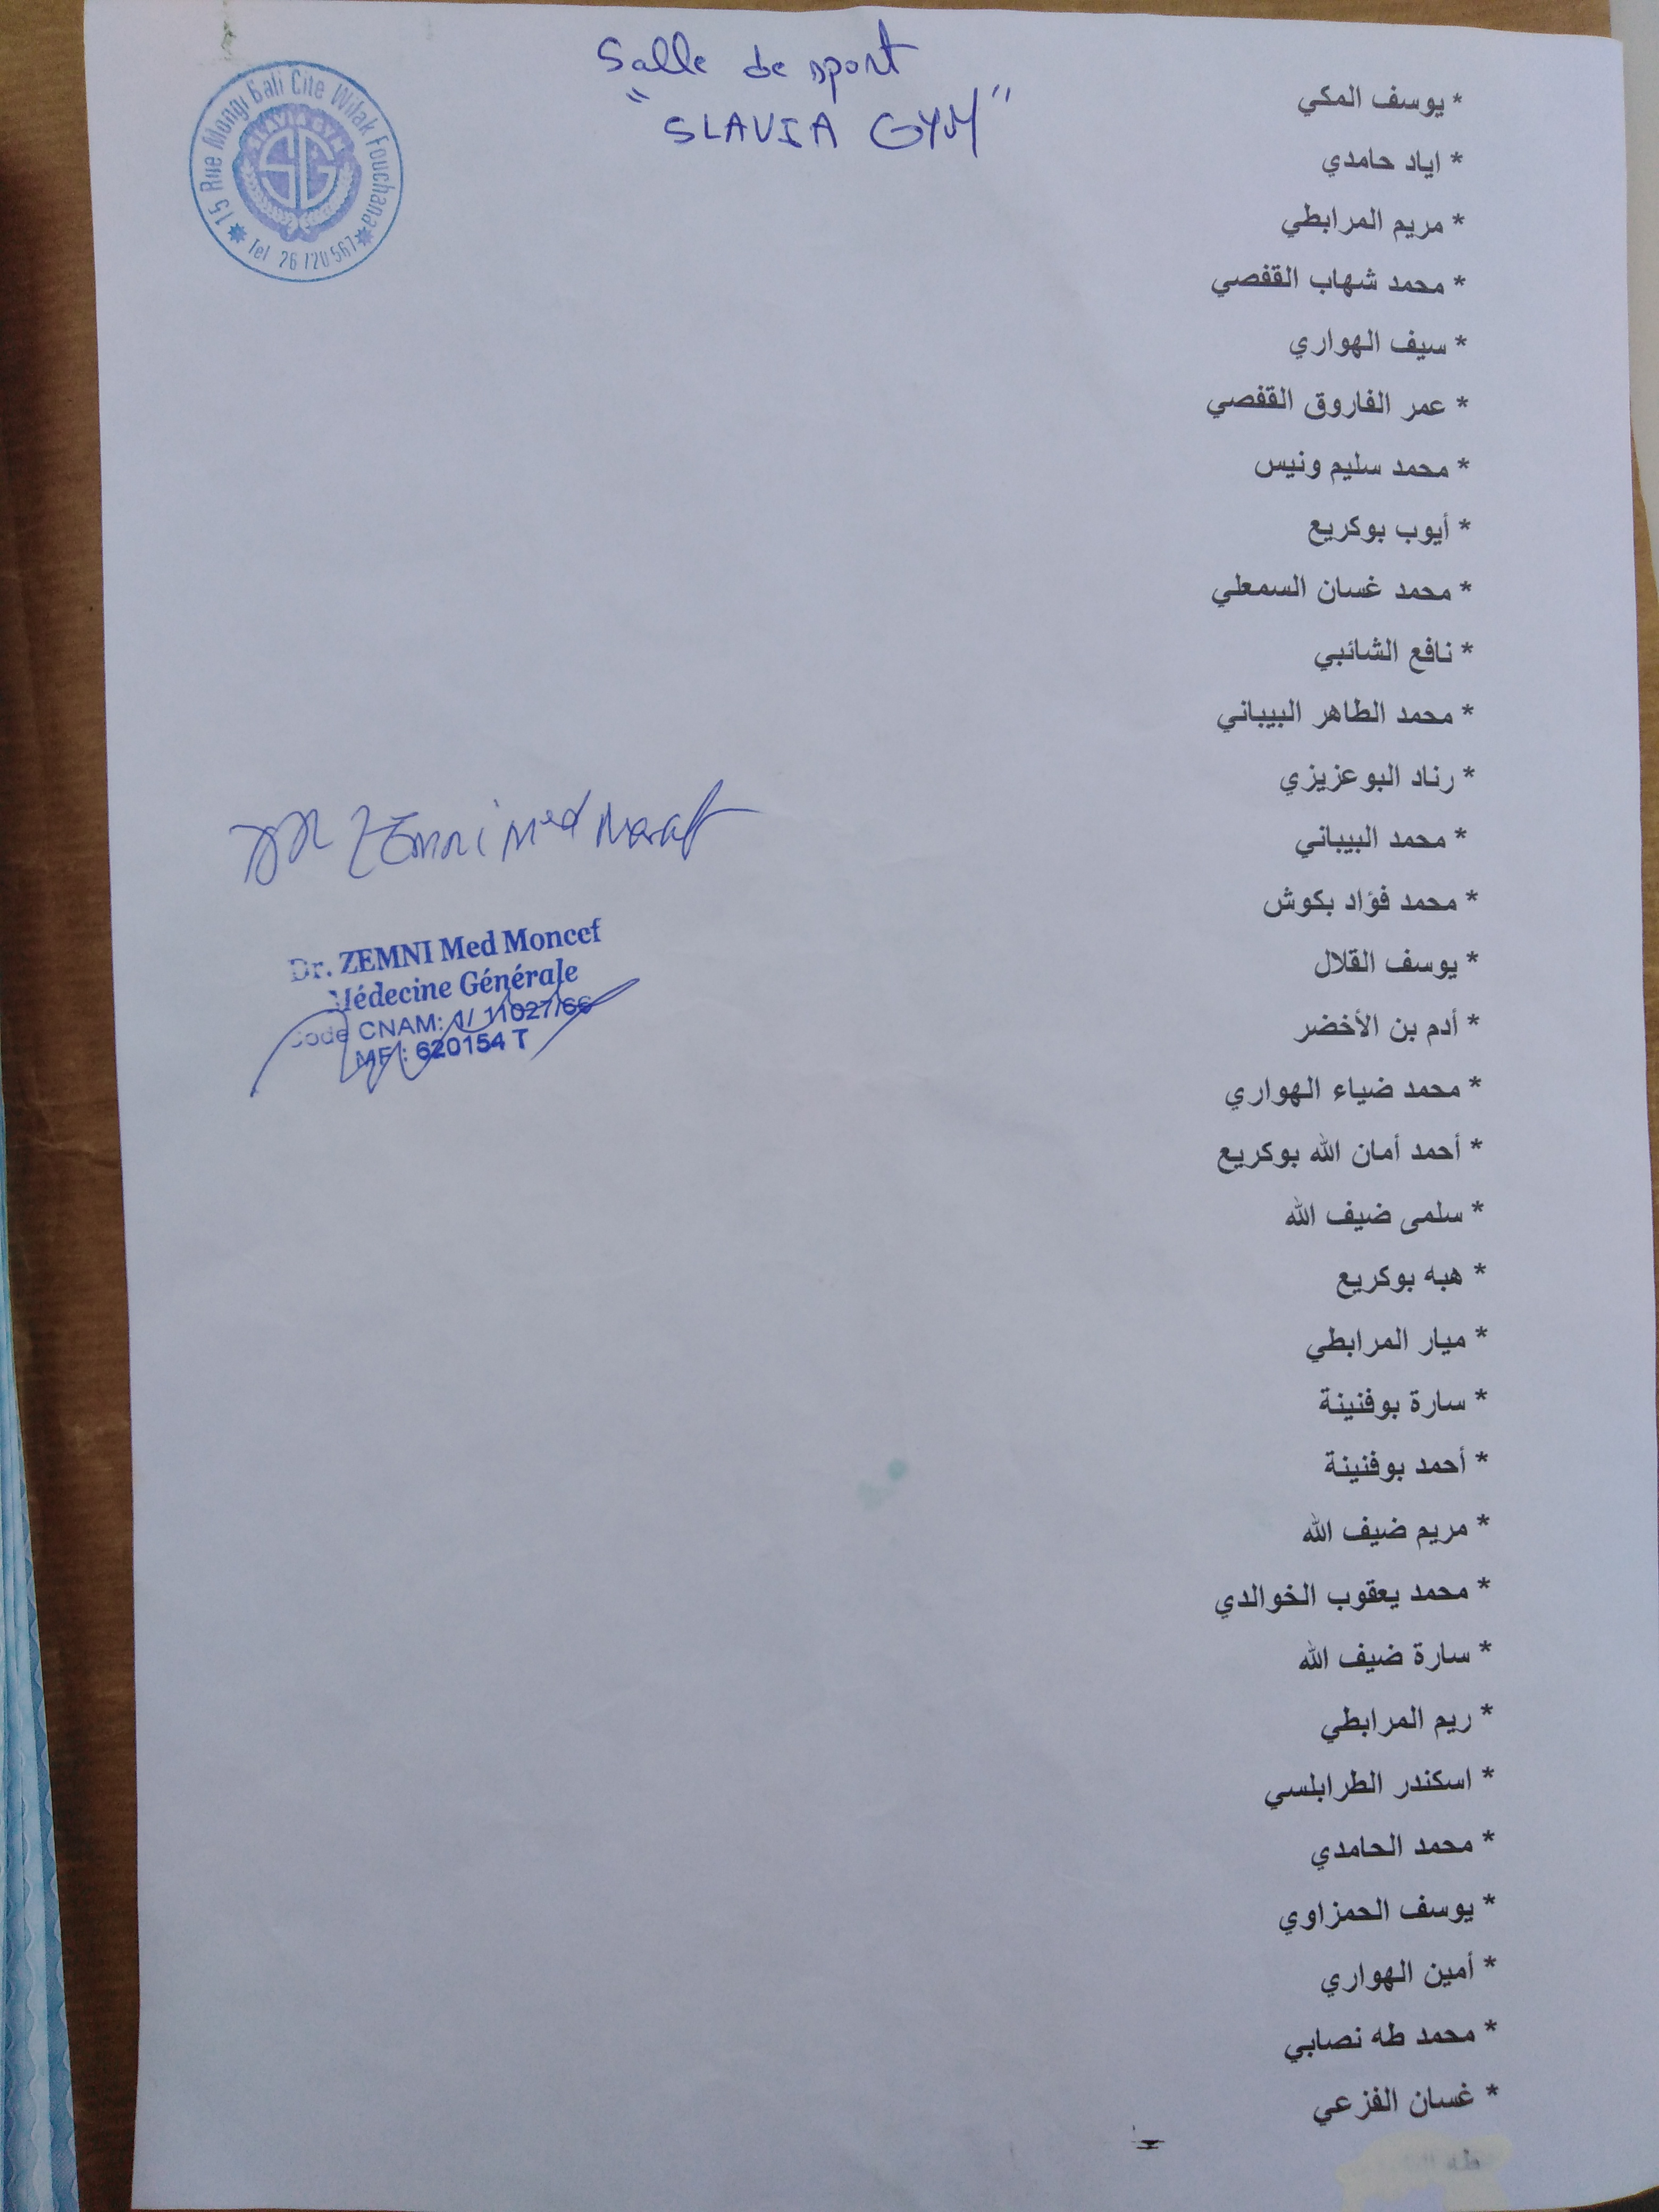 Salle de sport
"SLAVIA GYM"
15 Rue Mongi Bali Cite Wifak Fouchana
SLAVIA GYM
SG
Tel 26 120 567
* يوسف المكي
* اياد حامدي
* مريم المرابطي
* محمد شهاب القفصي
* سيف الهواري
* عمر الفاروق القفصي
* محمد سليم ونيس
* أيوب بوكريع
* محمد غسان السمعلي
* نافع الشائبي
* محمد الطاهر البيباني
* رناد البوعزيزي
* محمد البيباني
* محمد فؤاد بكوش
* يوسف القلال
* أدم بن الأخضر
* محمد ضياء الهواري
* أحمد أمان الله بوكريع
* سلمى ضيف الله
* هبه بوكريع
* ميار المرابطي
* سارة بوفنينة
* أحمد بوفنينة
* مريم ضيف الله
* محمد يعقوب الخوالدي
* سارة ضيف الله
* ريم المرابطي
* اسكندر الطرابلسي
* محمد الحامدي
* يوسف الحمزاوي
* أمين الهواري
* محمد طه نصابي
* غسان الفزعي
طه
DR ZEMNI Med Moncef
Dr. ZEMNI Med Moncef
Médecine Générale
Code CNAM: 1/ 11027/66
MF : 620154 T